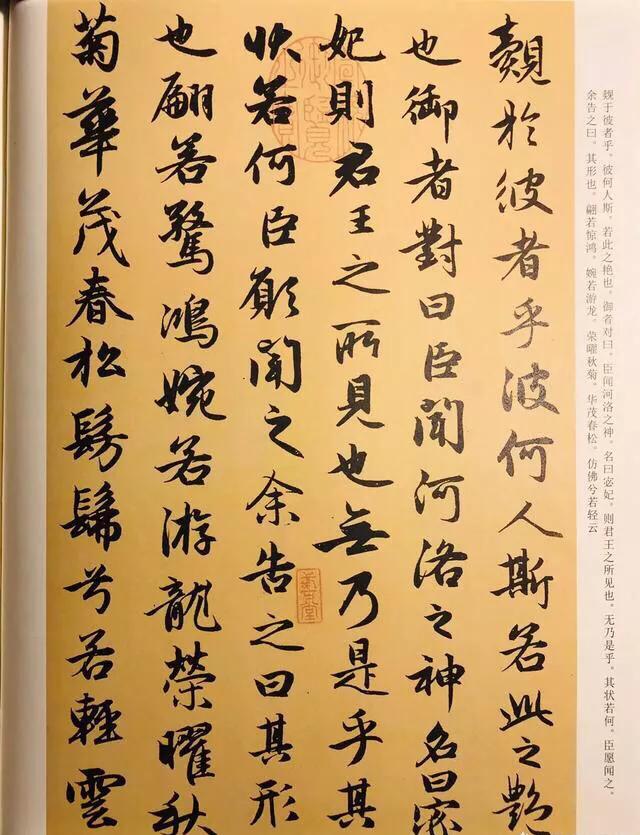 觌于彼者乎。彼何人斯。若此之艳也。御者对曰。臣闻河洛之神。名曰宓妃。则君王之所见也。无乃是乎。其状若何。臣愿闻之。
余告之曰。其形也。翩若惊鸿。婉若游龙。荣曜秋菊。华茂春松。仿佛兮若轻云
覿於彼者乎彼何人斯若此之艷
也御者對曰臣聞河洛之神名曰宓
妃則君王之所見也無乃是乎其
狀若何臣願聞之余告之曰其形
也翩若驚鴻婉若游龍榮曜秋
菊華茂春松髣髴兮若輕雲